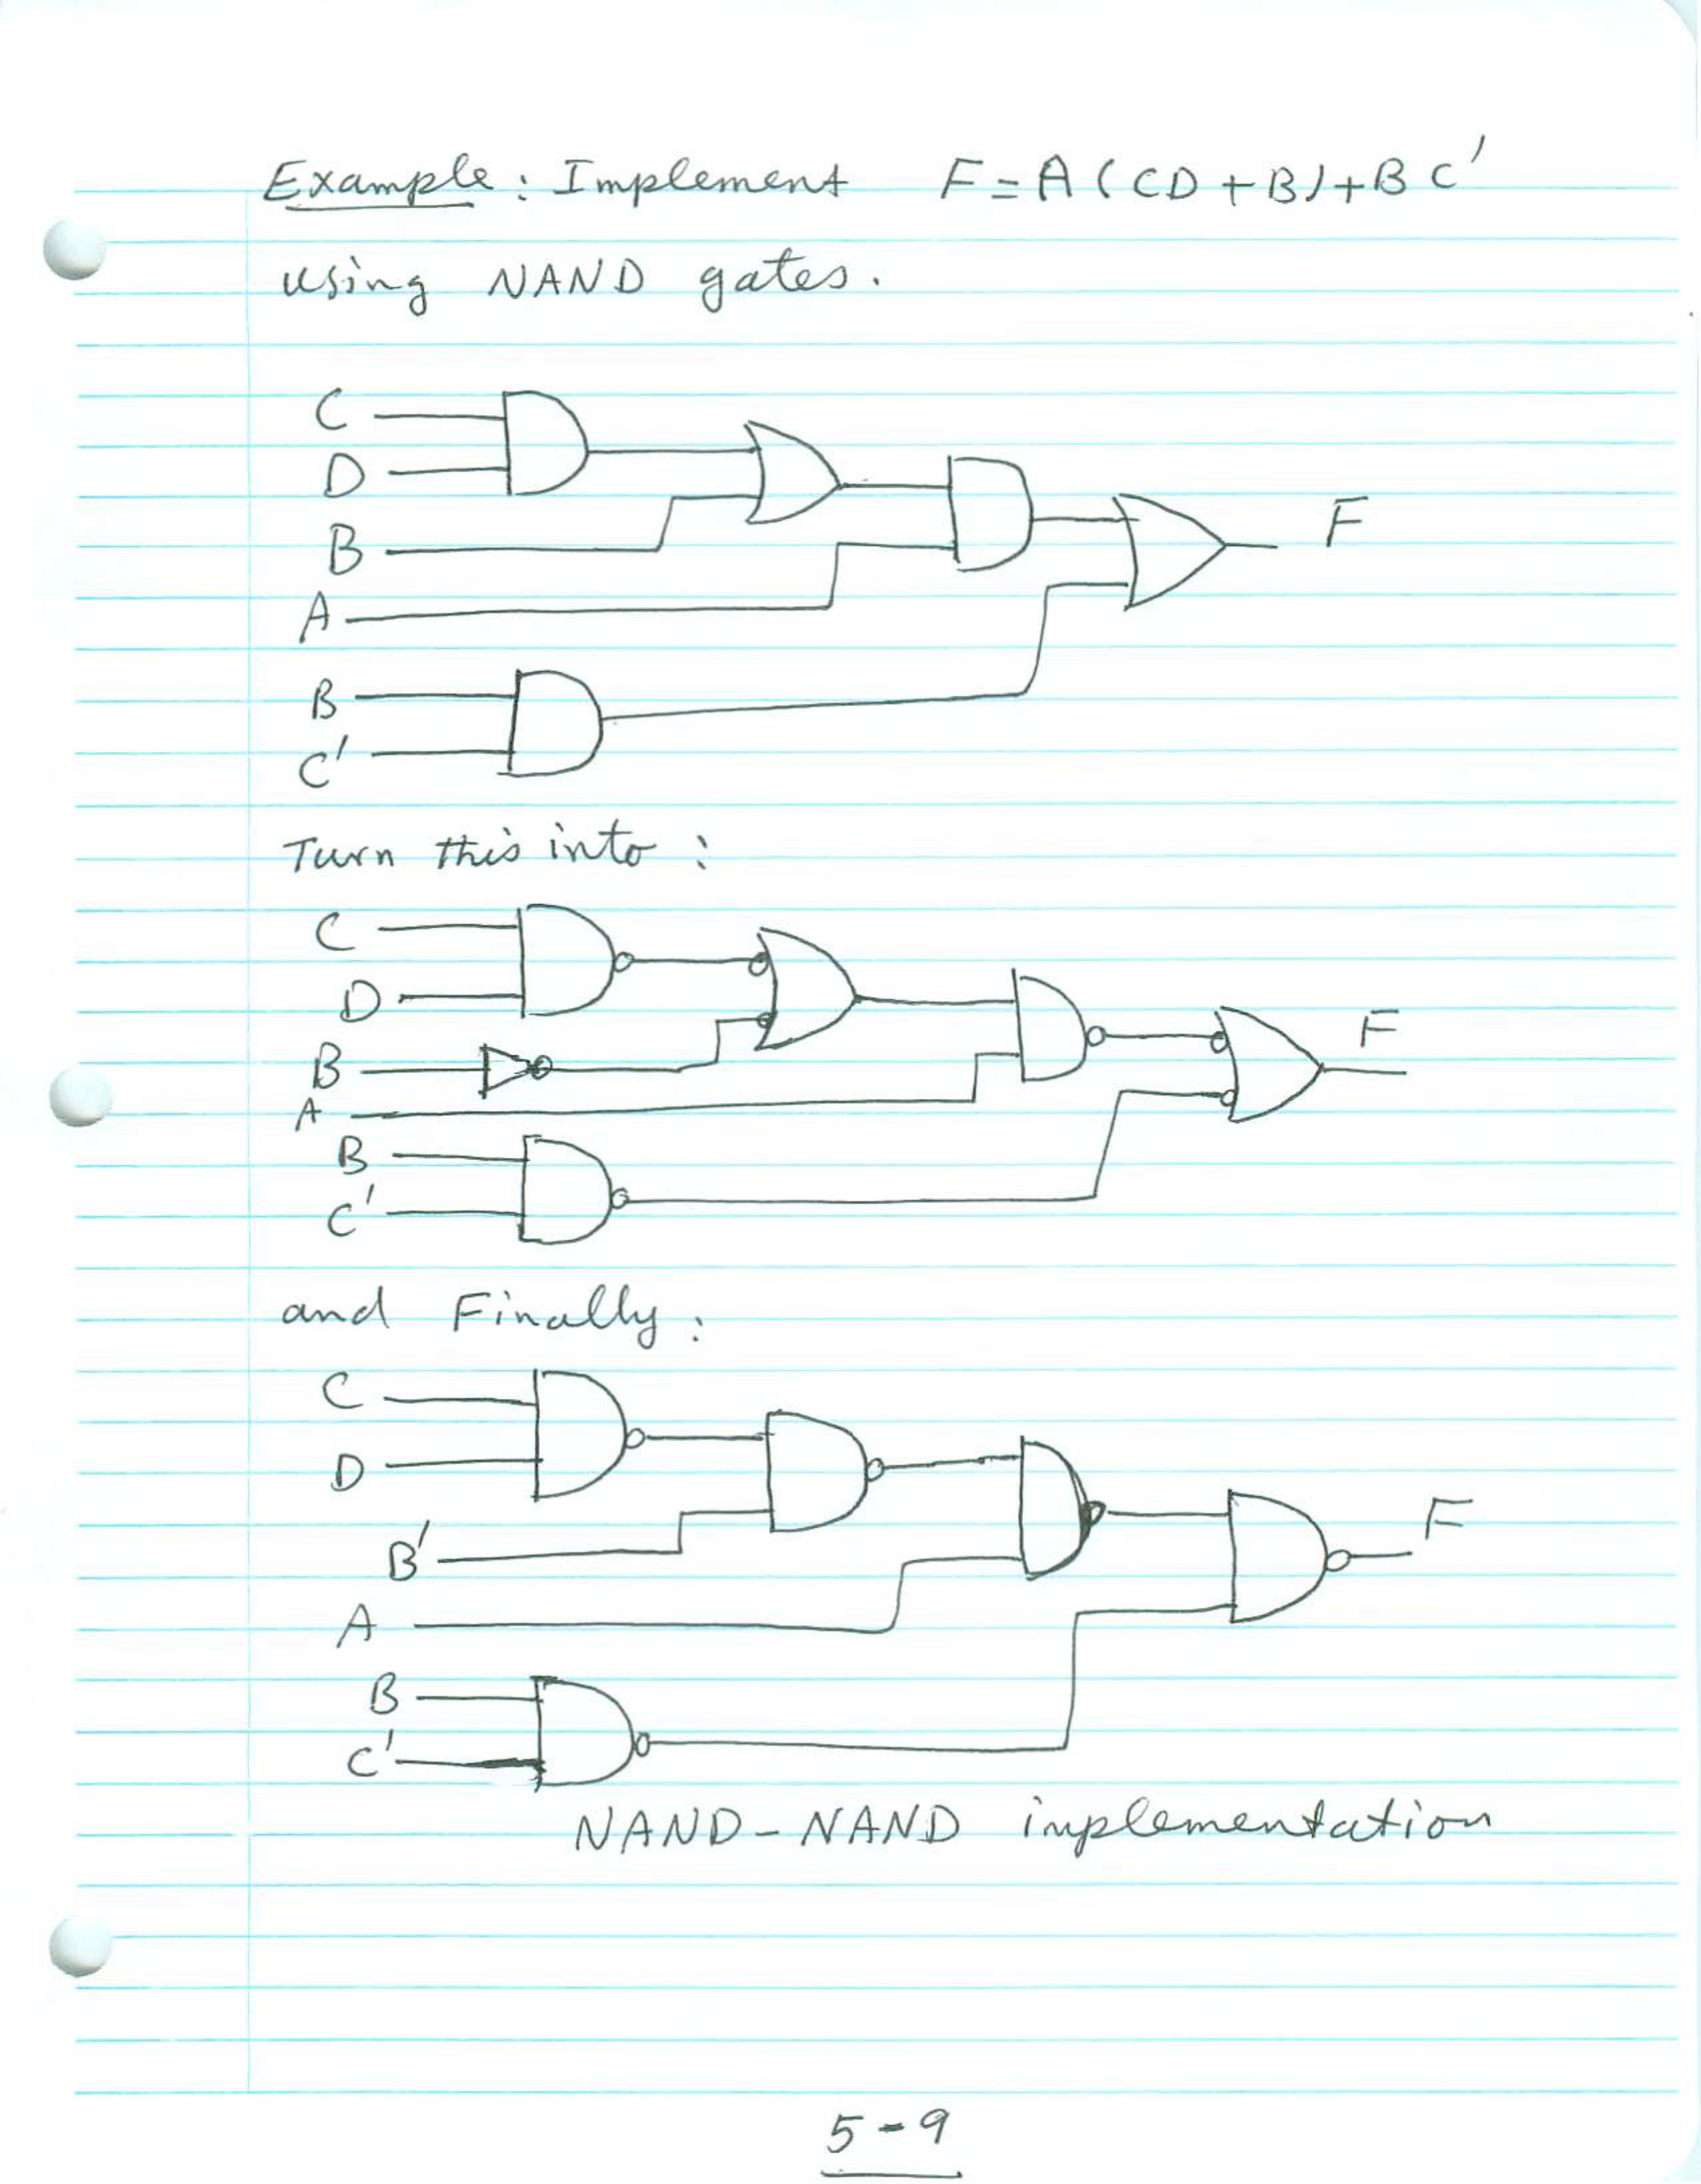 Example: Implement F = A(CD+B)+BC'
using NAND gates.
C
D
B
A
B
C'
F
Turn this into:
C
D
B
A
B
C'
F
and Finally:
C
D
B'
A
B
C'
F
NAND-NAND implementation
5-9